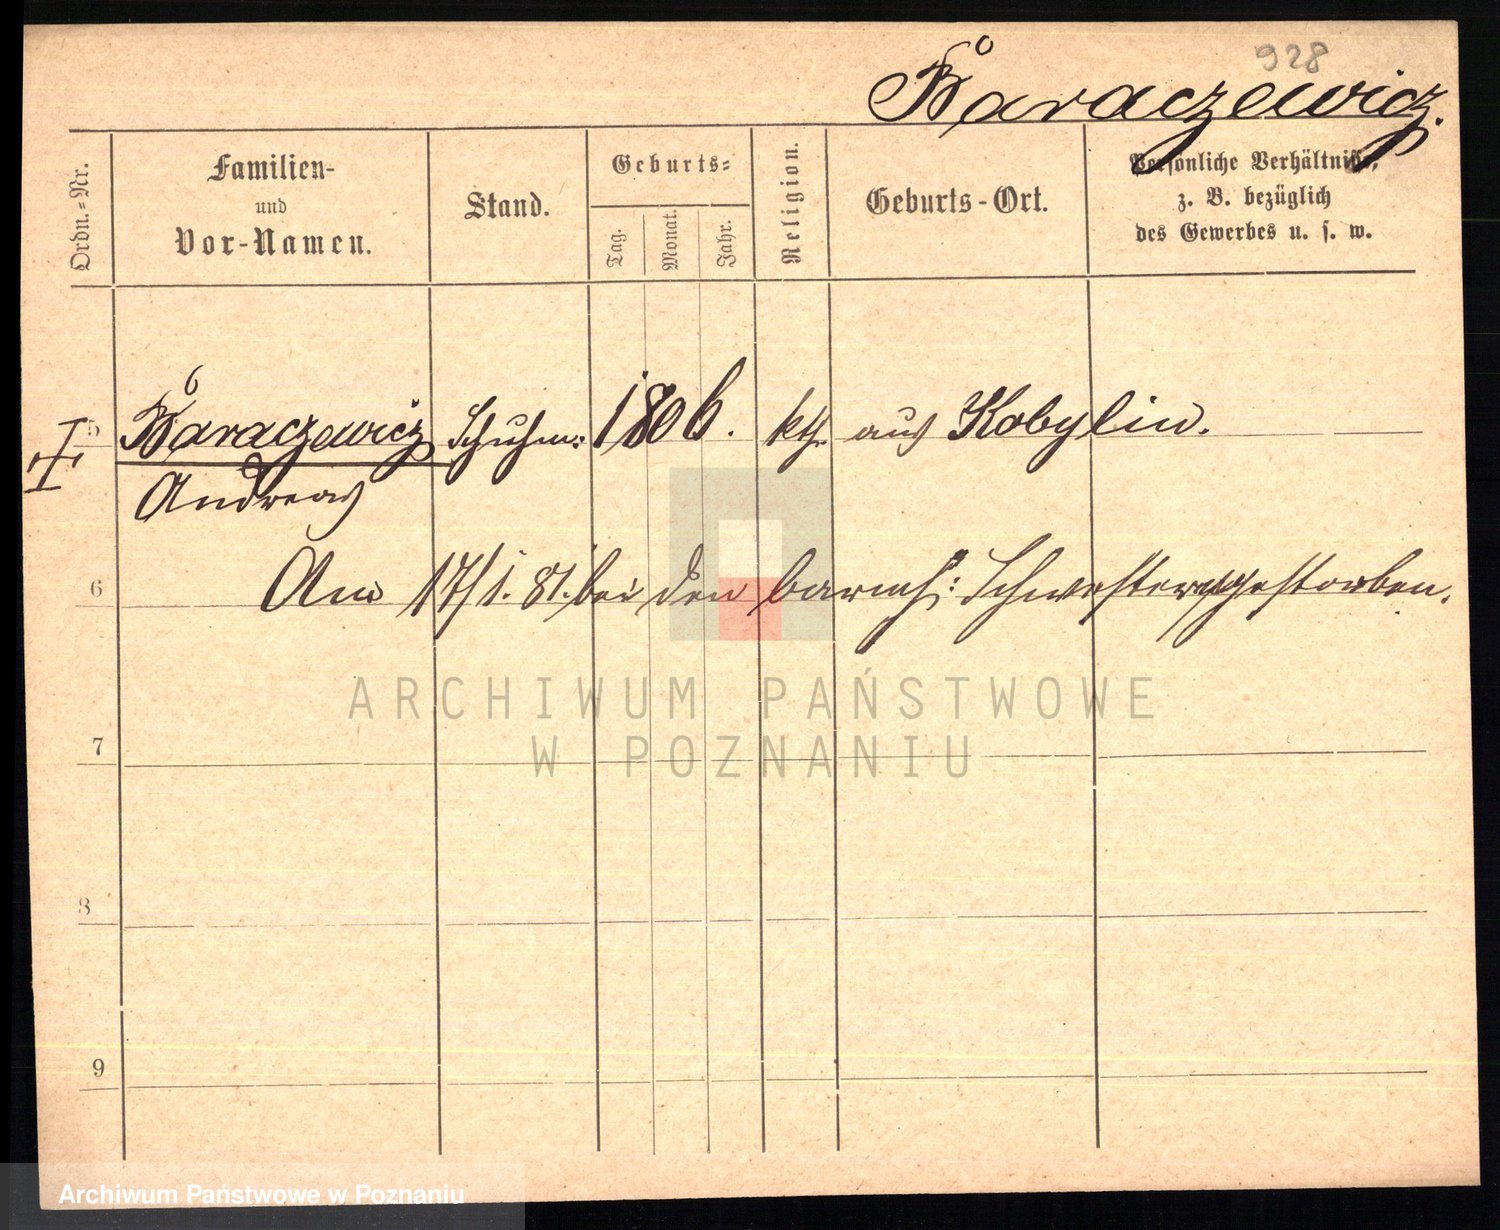 928
Baraczewicz.
Ordn.=Nr.
Familien-
und
Vor-Namen.
Stand.
Geburts=
Tag.
Monat.
Jahr.
Religion.
Geburts-Ort.
Persönliche Verhältnisse,
z. B. bezüglich
des Gewerbes u. s. w.
5 Baraczewicz Schuhm: 1806. kth. aus Kobylin.
Andreas
6 Am 17/1. 81. bei den barmh: Schwestern gestorben.
ARCHIWUM PAŃSTWOWE
W POZNANIU
7
8
9
Archiwum Państwowe w Poznaniu